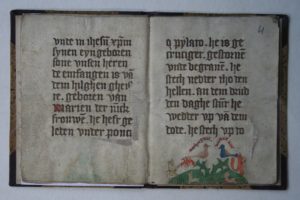 vnte in ihesū xpm
synen eyngeboren
sone vnsen heren
de emfangen is vā
dem hilghen ghey
te. geboren van
Marien der iück
frouwē. he heft ge
leten vnter ponci
q pylato. he is ge
cruciget. gestoruē
vnte begrauē. he
stech nedder tho den
hellen. an dem drüd
den daghe stūt he
wedder up vā dem
dode. he stech up to